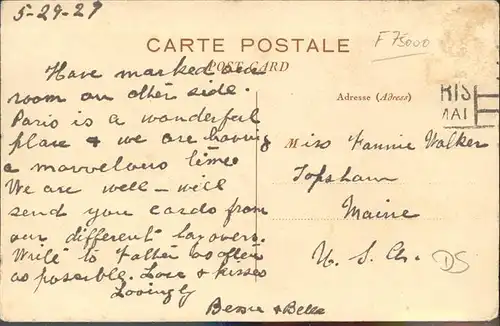 5-29-29
F 75000
CARTE POSTALE
POST CARD
Have marked our
room on other side.
Paris is a wonderful
place & we are having
a marvelous time
We are well - will
send you cards from
our different layovers.
Write to Father as often
as possible. Love & kisses
Lovingly
Bessie & Belle
Adresse (Adress)
RIS
MAI
Miss Fannie Walker
Topsham
Maine
U. S. A.
DS